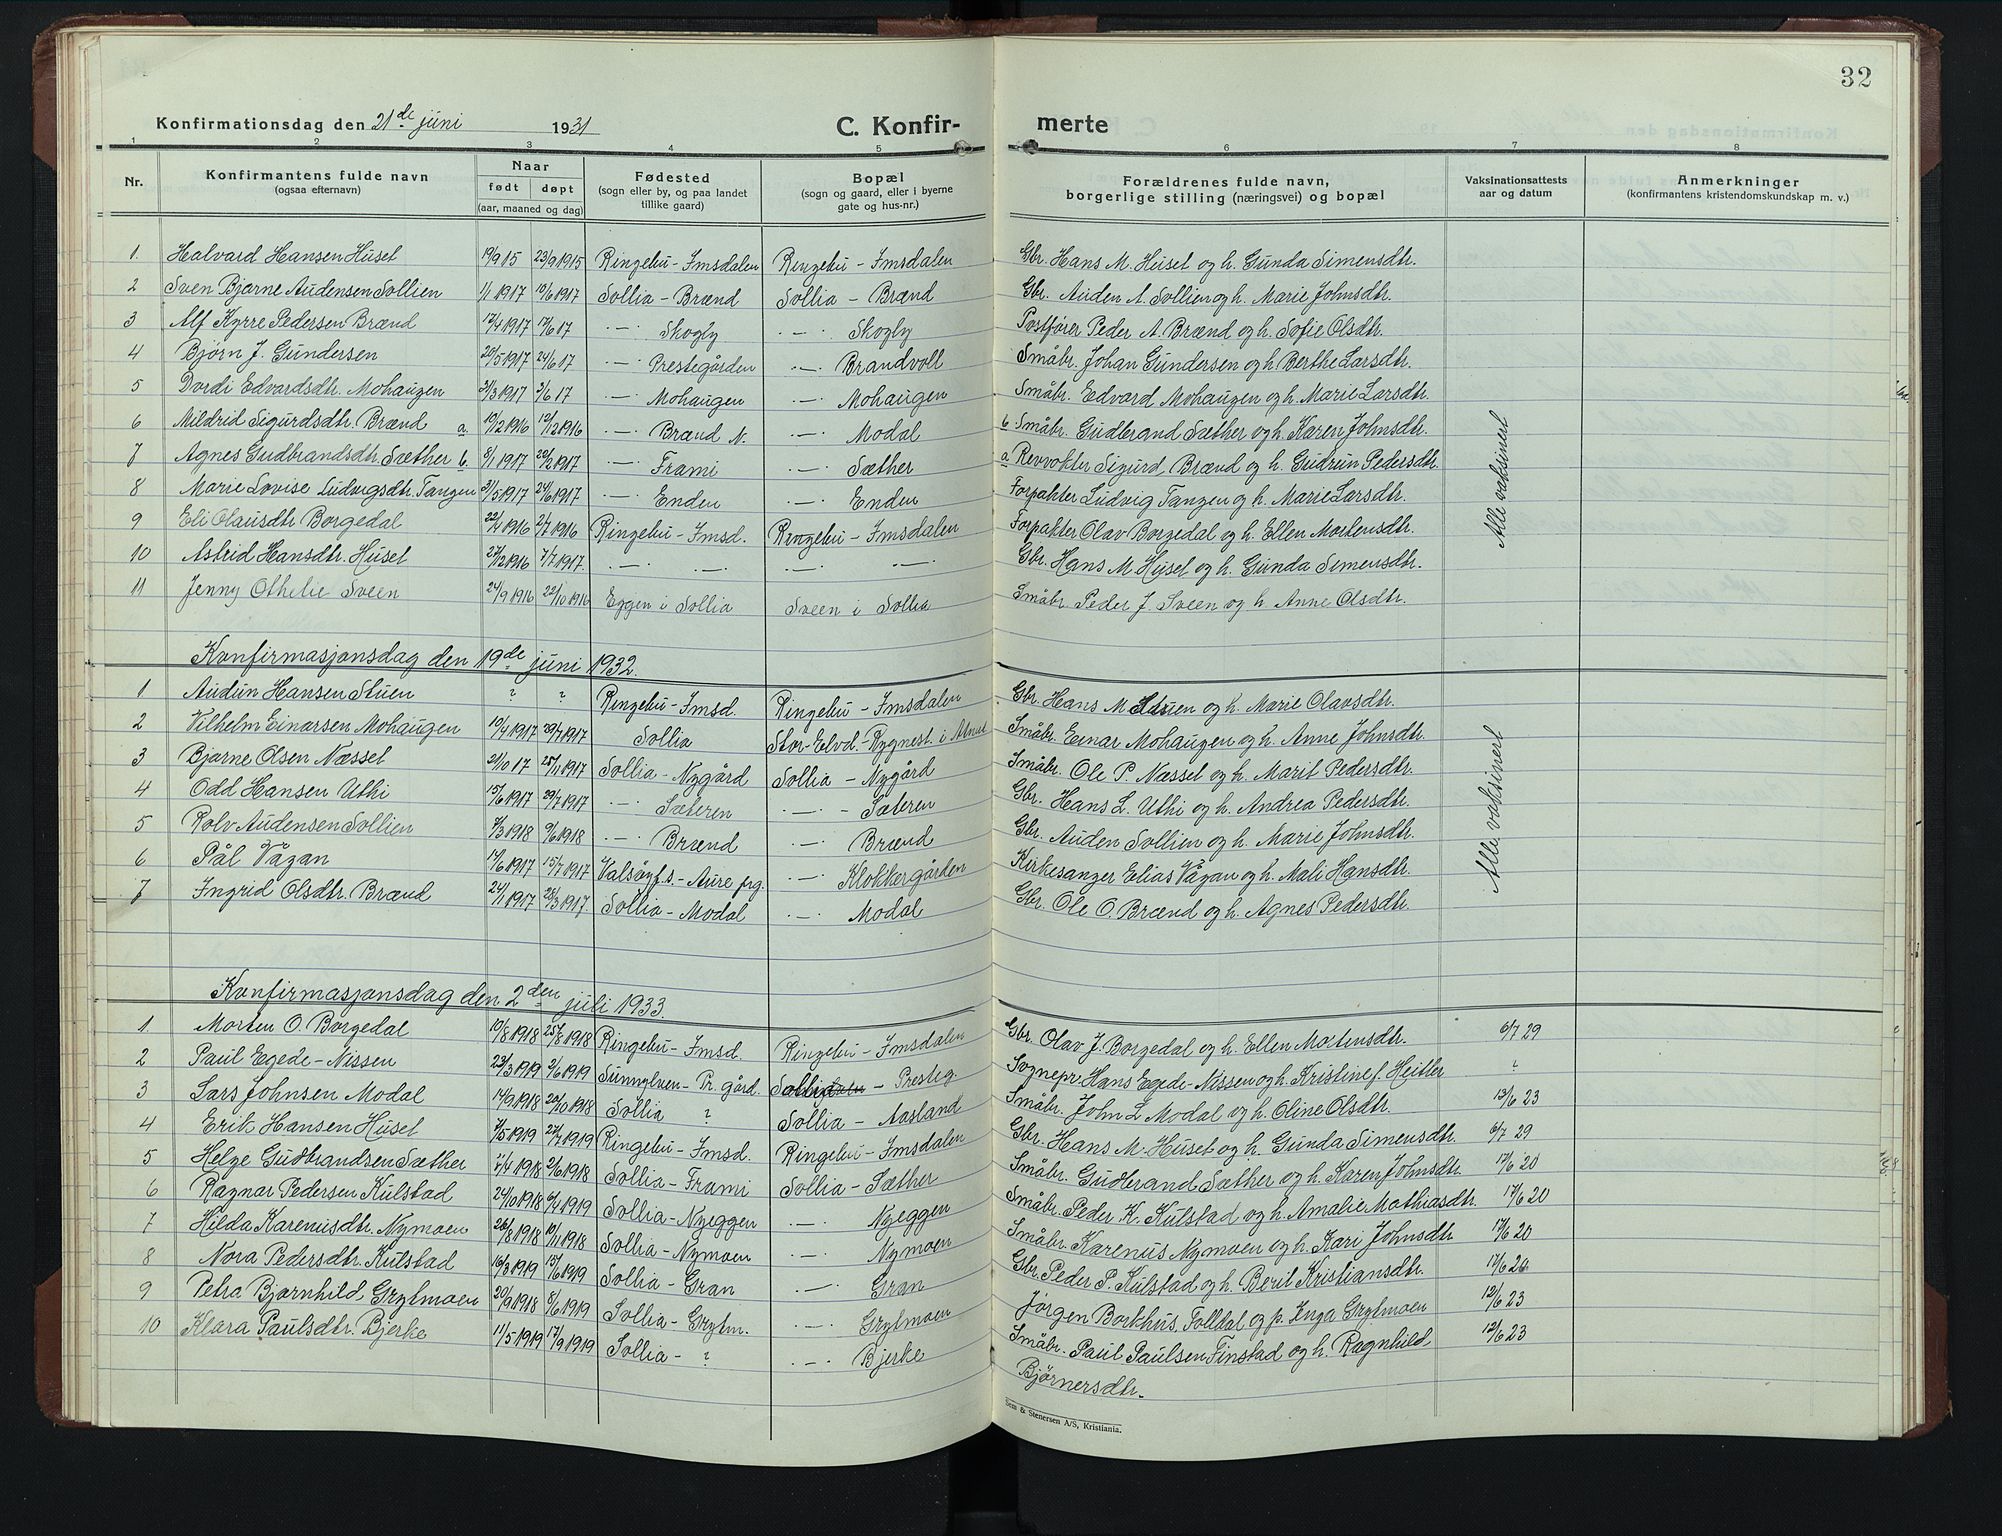 32
Konfirmationsdag den 21de juni 1931 C. Konfir- merte
1 2 3 4 5 6 7 8
Nr. Konfirmantens fulde navn (ogsaa efternavn) Naar født døpt (aar, maaned og dag) Fødested (sogn eller by, og paa landet tillike gaard) Bopæl (sogn og gaard, eller i byerne gate og hus-nr.) Forældrenes fulde navn, borgerlige stilling (næringsvei) og bopæl Vaksinationsattests aar og datum Anmerkninger (konfirmantens kristendomskundskap m. v.)
1 Halvard Hansen Huset 19/9 15 23/9 1915 Ringebu - Imsdalen Ringebu - Imsdalen Gbr. Hans M. Huset og h. Gunda Simensdtr.
2 Sven Bjarne Audensen Sollien 1/1 1917 10/6 1917 Sollia - Brænd Sollia - Brænd Gbr. Auden A. Sollien og h. Marie Johnsdtr.
3 Alf Kyrre Pedersen Brænd 12/4 1917 17/6 17 -"- Skogly -"- Skogly Postfører Peder A. Brænd og h. Sofie Olsdtr.
4 Bjørn J. Gundersen 20/5 1917 24/6 17 -"- Prestegården -"- Brandvoll Småbr. Johan Gundersen og h. Berthe Larsdtr.
5 Dordi Edvardsdtr. Mohaugen 31/3 1917 3/6 17 -"- Mohaugen -"- Mohaugen Småbr. Edvard Mohaugen og h. Marie Larsdtr.
6 Mildrid Sigurdsdtr. Brænd a. 10/12 1916 12/12 1916 -"- Brænd N. -"- Modal b Småbr. Gudbrand Sæther og h. Karen Johnsdtr.
7 Agnes Gudbrandsdtr. Sæther b. 8/1 1917 20/2 1917 -"- Frami -"- Sæther a Revvokter Sigurd Brænd og h. Gudrun Pedersdtr.
8 Marie Lovise Ludvigsdtr. Tangen 31/5 1917 24/6 1917 -"- Enden -"- Enden Forpakter Ludvig Tangen og h. Marie Larsdtr.
9 Eli Olausdtr Borgedal 22/4 1916 2/7 1916 Ringebu - Imsd. Ringebu - Imsdalen Forpakter Olav Borgedal og h. Ellen Mortensdtr.
10 Astrid Hansdtr. Huset 27/12 1916 7/7 1917. -"- -"- -"- -"- Gbr. Hans M. Huset og h. Gunda Simensdtr.
11 Jenny Othelie Sveen 24/9 1916 22/10 1916 Eggen i Sollia Sveen i Sollia Småbr. Peder J. Sveen og h. Anne Olsdtr.
Alle vaksinert
Konfirmasjonsdag den 19de juni 1932.
1 Audun Hansen Stuen ? ? Ringebu - Imsd. Ringebu - Imsdalen Gbr. Hans M. Stuen og h. Marie Olavsdtr.
2 Vilhelm Einarsen Mohaugen 10/4 1917 29/7 1917 Sollia Stor-Elvd. - Rygnest. i Atnas Småbr. Einar Mohaugen og h. Anne Johnsdtr.
3 Bjarne Olsen Næsset 21/10 17 25/11 1917 Sollia - Nygård Sollia - Nygård Småbr. Ole P. Næsset og h. Marit Pedersdtr.
4 Odd Hansen Uthi 15/6 1917 29/7 1917 -"- Sæteren -"- Sæteren Gbr. Hans L. Uthi og h. Andrea Pedersdtr.
5 Rolv Audensen Sollien 3/3 1918 9/6 1918 -"- Brænd -"- Brænd Gbr. Auden Sollien og h. Marie Johnsdtr.
6 Pål Vågan 14/6 1917 15/7 1917 Valsøyf. s. - Aure prg. -"- Klokkergården Kirkesanger Elias Vågan og h. Mali Hansdtr.
7 Ingrid Olsdtr. Brænd 24/1 1917 28/3 1917 Sollia - Modal -"- Modal Gbr. Ole O. Brænd og h. Agnes Pedersdtr.
Alle vaksinert
Konfirmasjonsdag den 2den juli 1933.
1 Morten O. Borgedal 10/8 1918 25/8 1918 Ringebu - Imsd. Ringebu - Imsdalen Gbr. Olav J. Borgedal og h. Ellen Mortensdtr. 6/7 29
2 Paul Egede-Nissen 23/3 1919 2/6 1919 Sunnylven - Pr. gård. Sollia - Presteg. Sognepr Hans Egede-Nissen og h. Kristine f. Heitler ?
3 Lars Johnsen Modal 14/9 1918 20/10 1918 Sollia ? Sollia - Aasland Småbr. John L. Modal og h. Oline Olsdtr. 13/6 23
4 Erik Hansen Huset 7/5 1919 27/7 1919 Ringebu - Imsd. Ringebu - Imsdalen Gbr. Hans M. Huset og h. Gunda Simensdtr. 6/7 29
5 Helge Gudbrandsen Sæther 7/4 1918 2/6 1918 Sollia - Frami Sollia - Sæther Småbr. Gudbrand Sæther og h. Karen Johnsdtr. 17/6 20
6 Ragnar Pedersen Kulstad 24/10 1918 6/4 1919 Sollia - Nyeggen -"- Nyeggen Småbr. Peder K. Kulstad og h. Amalie Mathiasdtr. 17/6 20
7 Hilda Karenusdtr. Nymoen 26/8 1918 10/11 1918 Sollia - Nymoen -"- Nymoen Småbr. Karenus Nymoen og h. Kari Johnsdtr 17/6 20
8 Nora Pedersdtr. Kulstad 16/3 1919 15/6 1919 Sollia - Gran -"- Gran Gbr. Peder P. Kulstad og h. Berit Kristiansdtr. 17/6 26
9 Petra Bjørnhild Grytmoen 20/9 1918 8/6 1919 Sollia - Grytm. -"- Grytmoen Jørgen Borkhus, Folldal og p. Inga Grytmoen 12/6 23
10 Klara Paulsdtr. Bjerke 11/5 1919 17/9 1919 Sollia - ? -"- Bjerke Småbr. Paul Paulsen Finstad og h. Ragnhild 12/6 23
Bjørnersdtr.
Sem & Stenersen A/S, Kristiania.